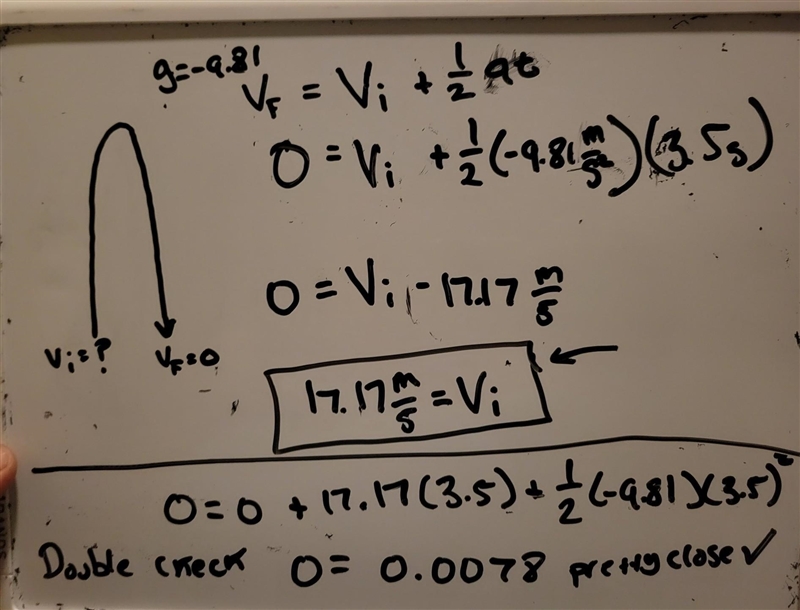 g=-9.81
V_F = V_i + 1/2 at
0 = V_i + 1/2 (-9.81 m/s²)(3.5s)
0 = V_i - 17.17 m/s
V_i=? V_F=0
17.17 m/s = V_i
0 = 0 + 17.17(3.5) + 1/2 (-9.81)(3.5)²
Double check 0 = 0.0078 pretty close ✓